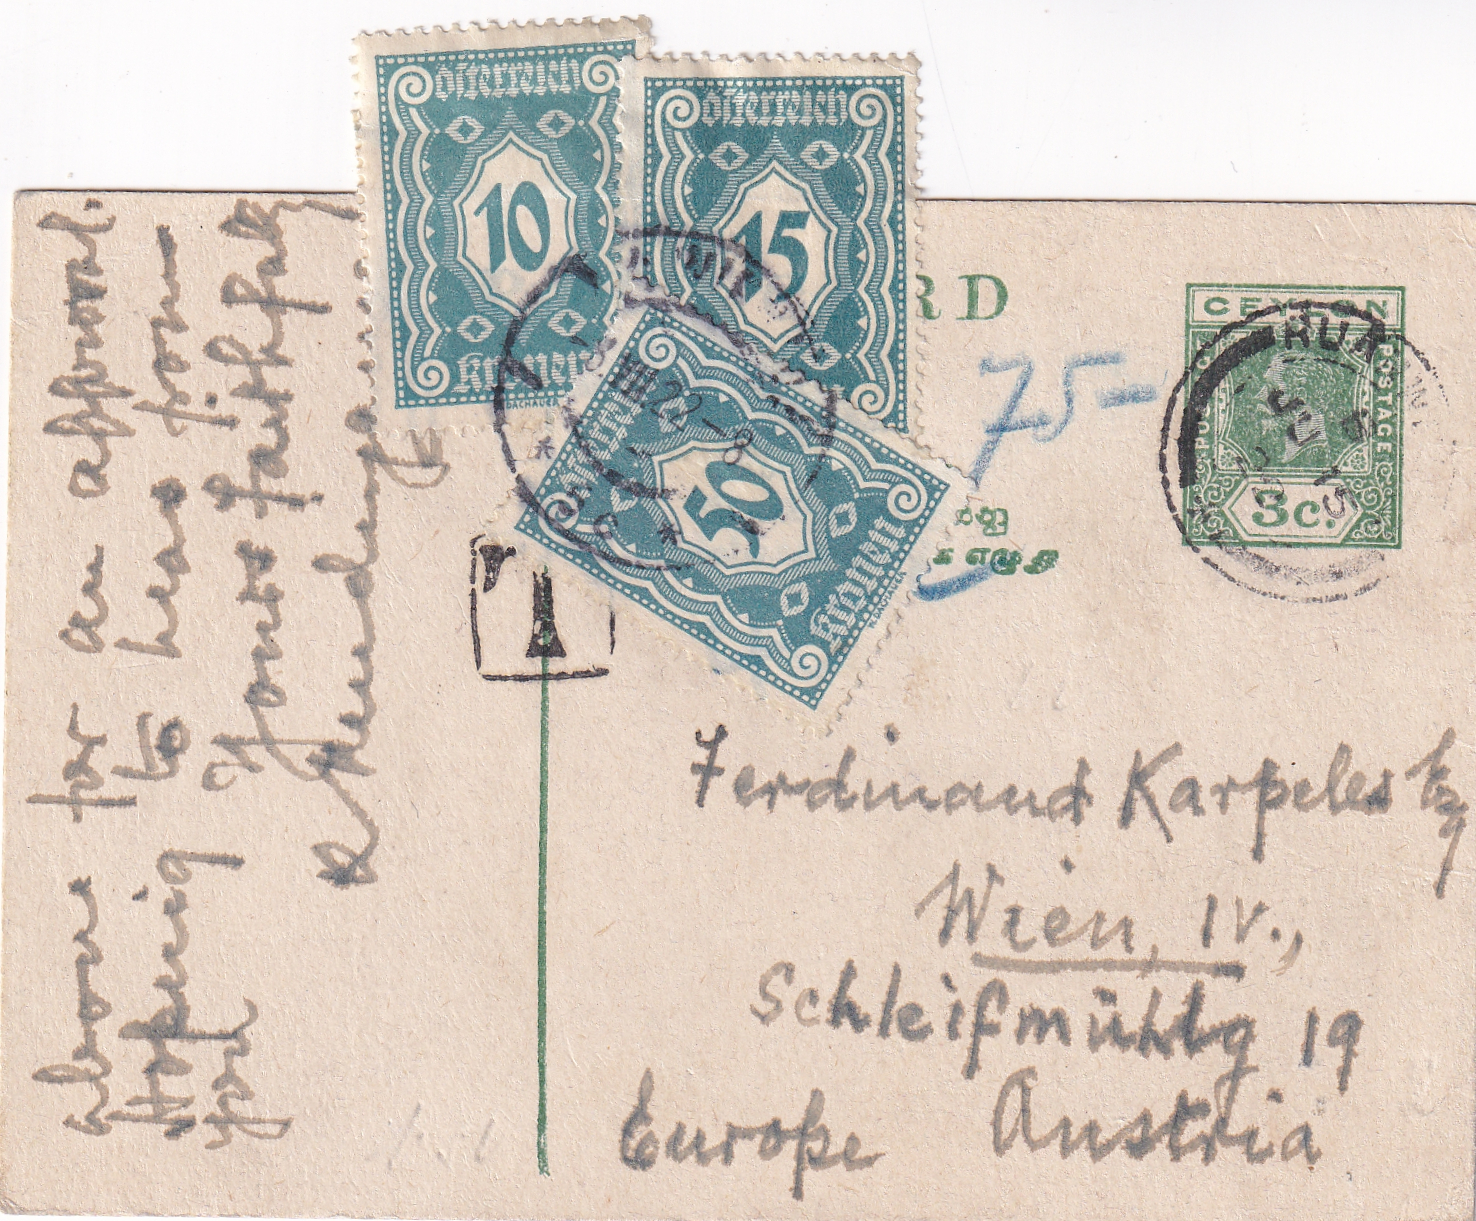 Österreich
10
Kronen
DACHAUER
Österreich
15
Österreich
50
Kronen
R.DACHAUER
VIII 22-8
RD
CEYLON
POSTAGE
3c.
75
T
එළු
க எழுதி
Ferdinand Karpeles Esq
Wien, IV.,
Schleifmühlg 19
Europe Austria
above for an approval.
Hoping to hear from
you
Yours faithfully